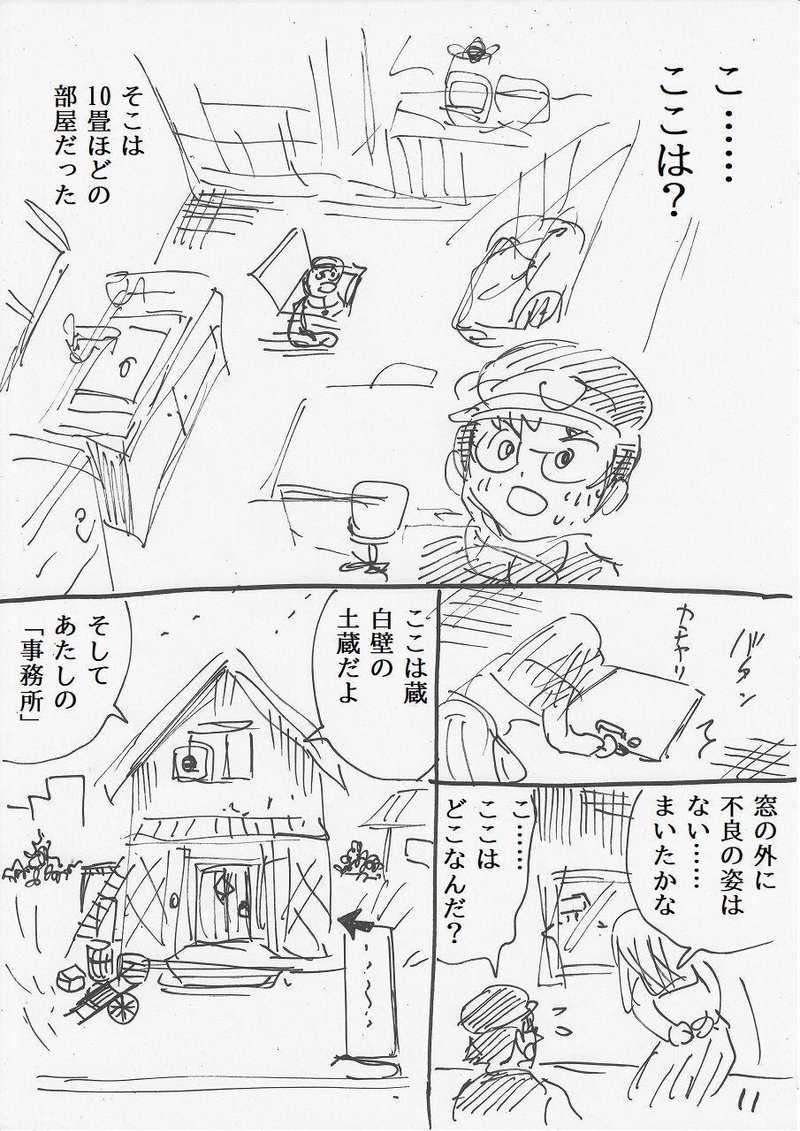 こ……
ここは？
そこは
10畳ほどの
部屋だった
バタン
カチャリ
窓の外に
不良の姿は
ない……
まいたかな
こ……
ここは
どこなんだ？
ここは蔵
白壁の
土蔵だよ
そして
あたしの
「事務所」
11